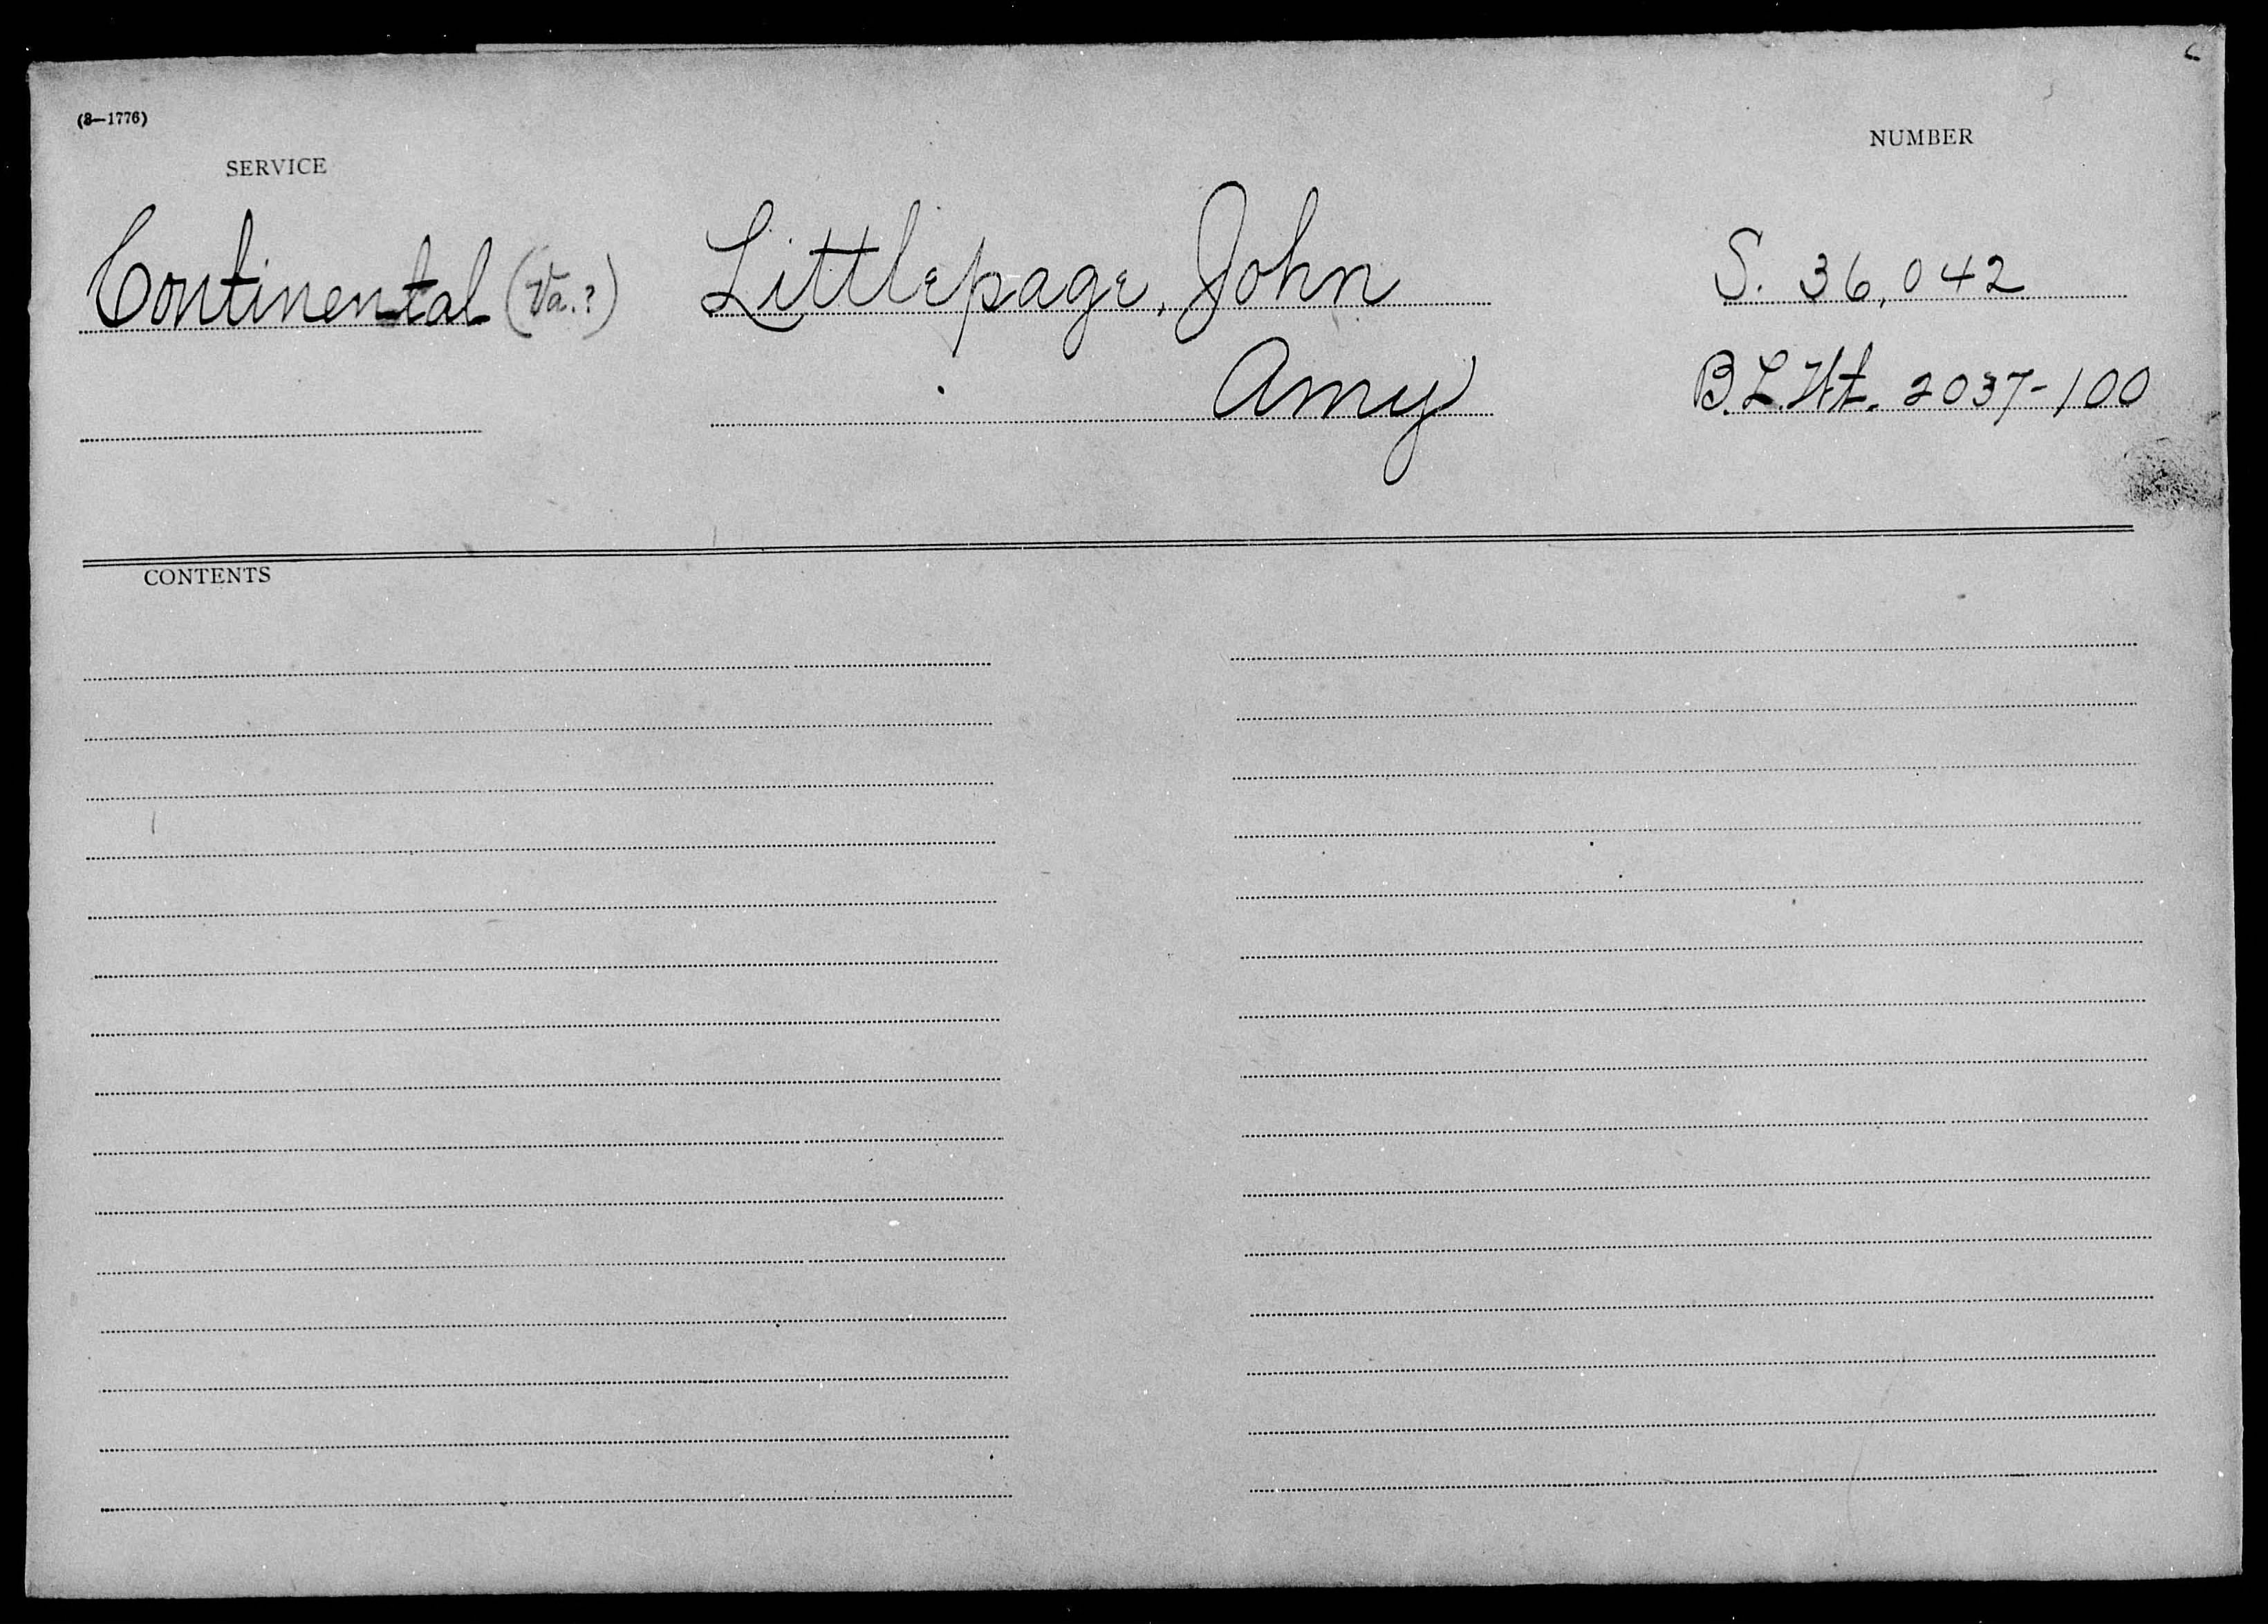 (3—1776)
NUMBER
SERVICE
Continental (Va.?) Littlepage, John S. 36,042
Amy B.L.Wt. 2037-100
CONTENTS